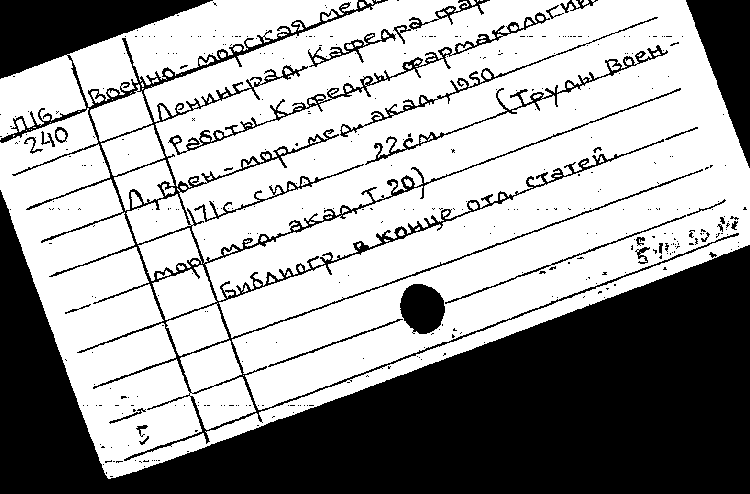 П16
240
Военно-морская мед
Ленинград. Кафедра фар
Работы Кафедры фармакологии.
Л., Воен.-мор. мед. акад., 1950.
171 с. с илл. 22 см. (Труды Воен.-
мор. мед. акад. Т. 20).
Библиогр. в конце отд. статей.
5